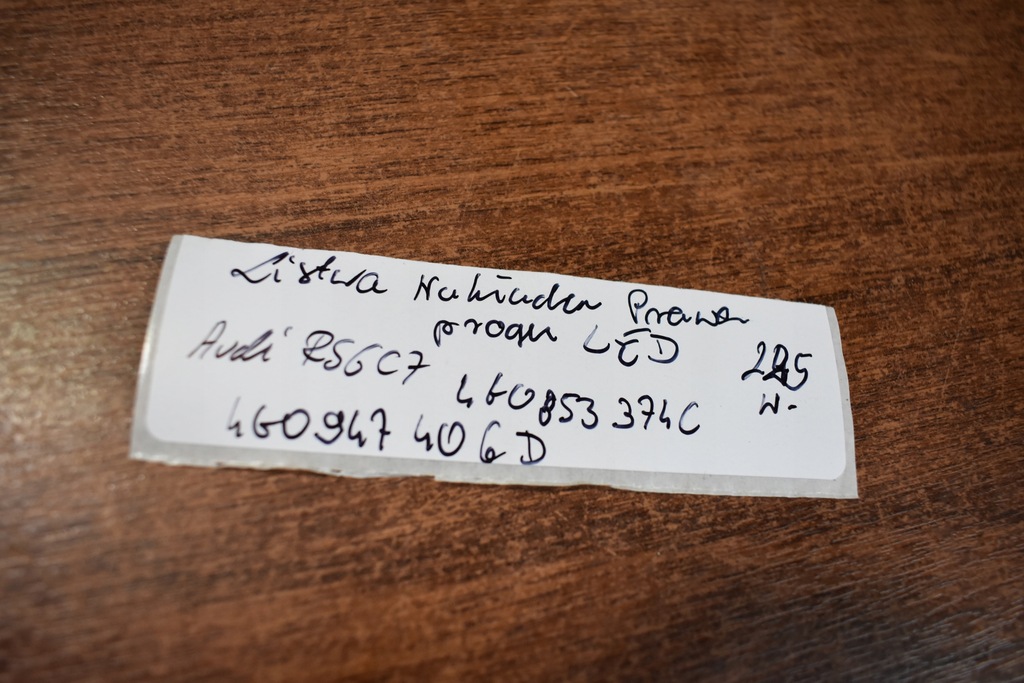 Listwa Nakładka Prawa
progu LED
Audi RS6C7
4G0853374C
4G0947406D
W.